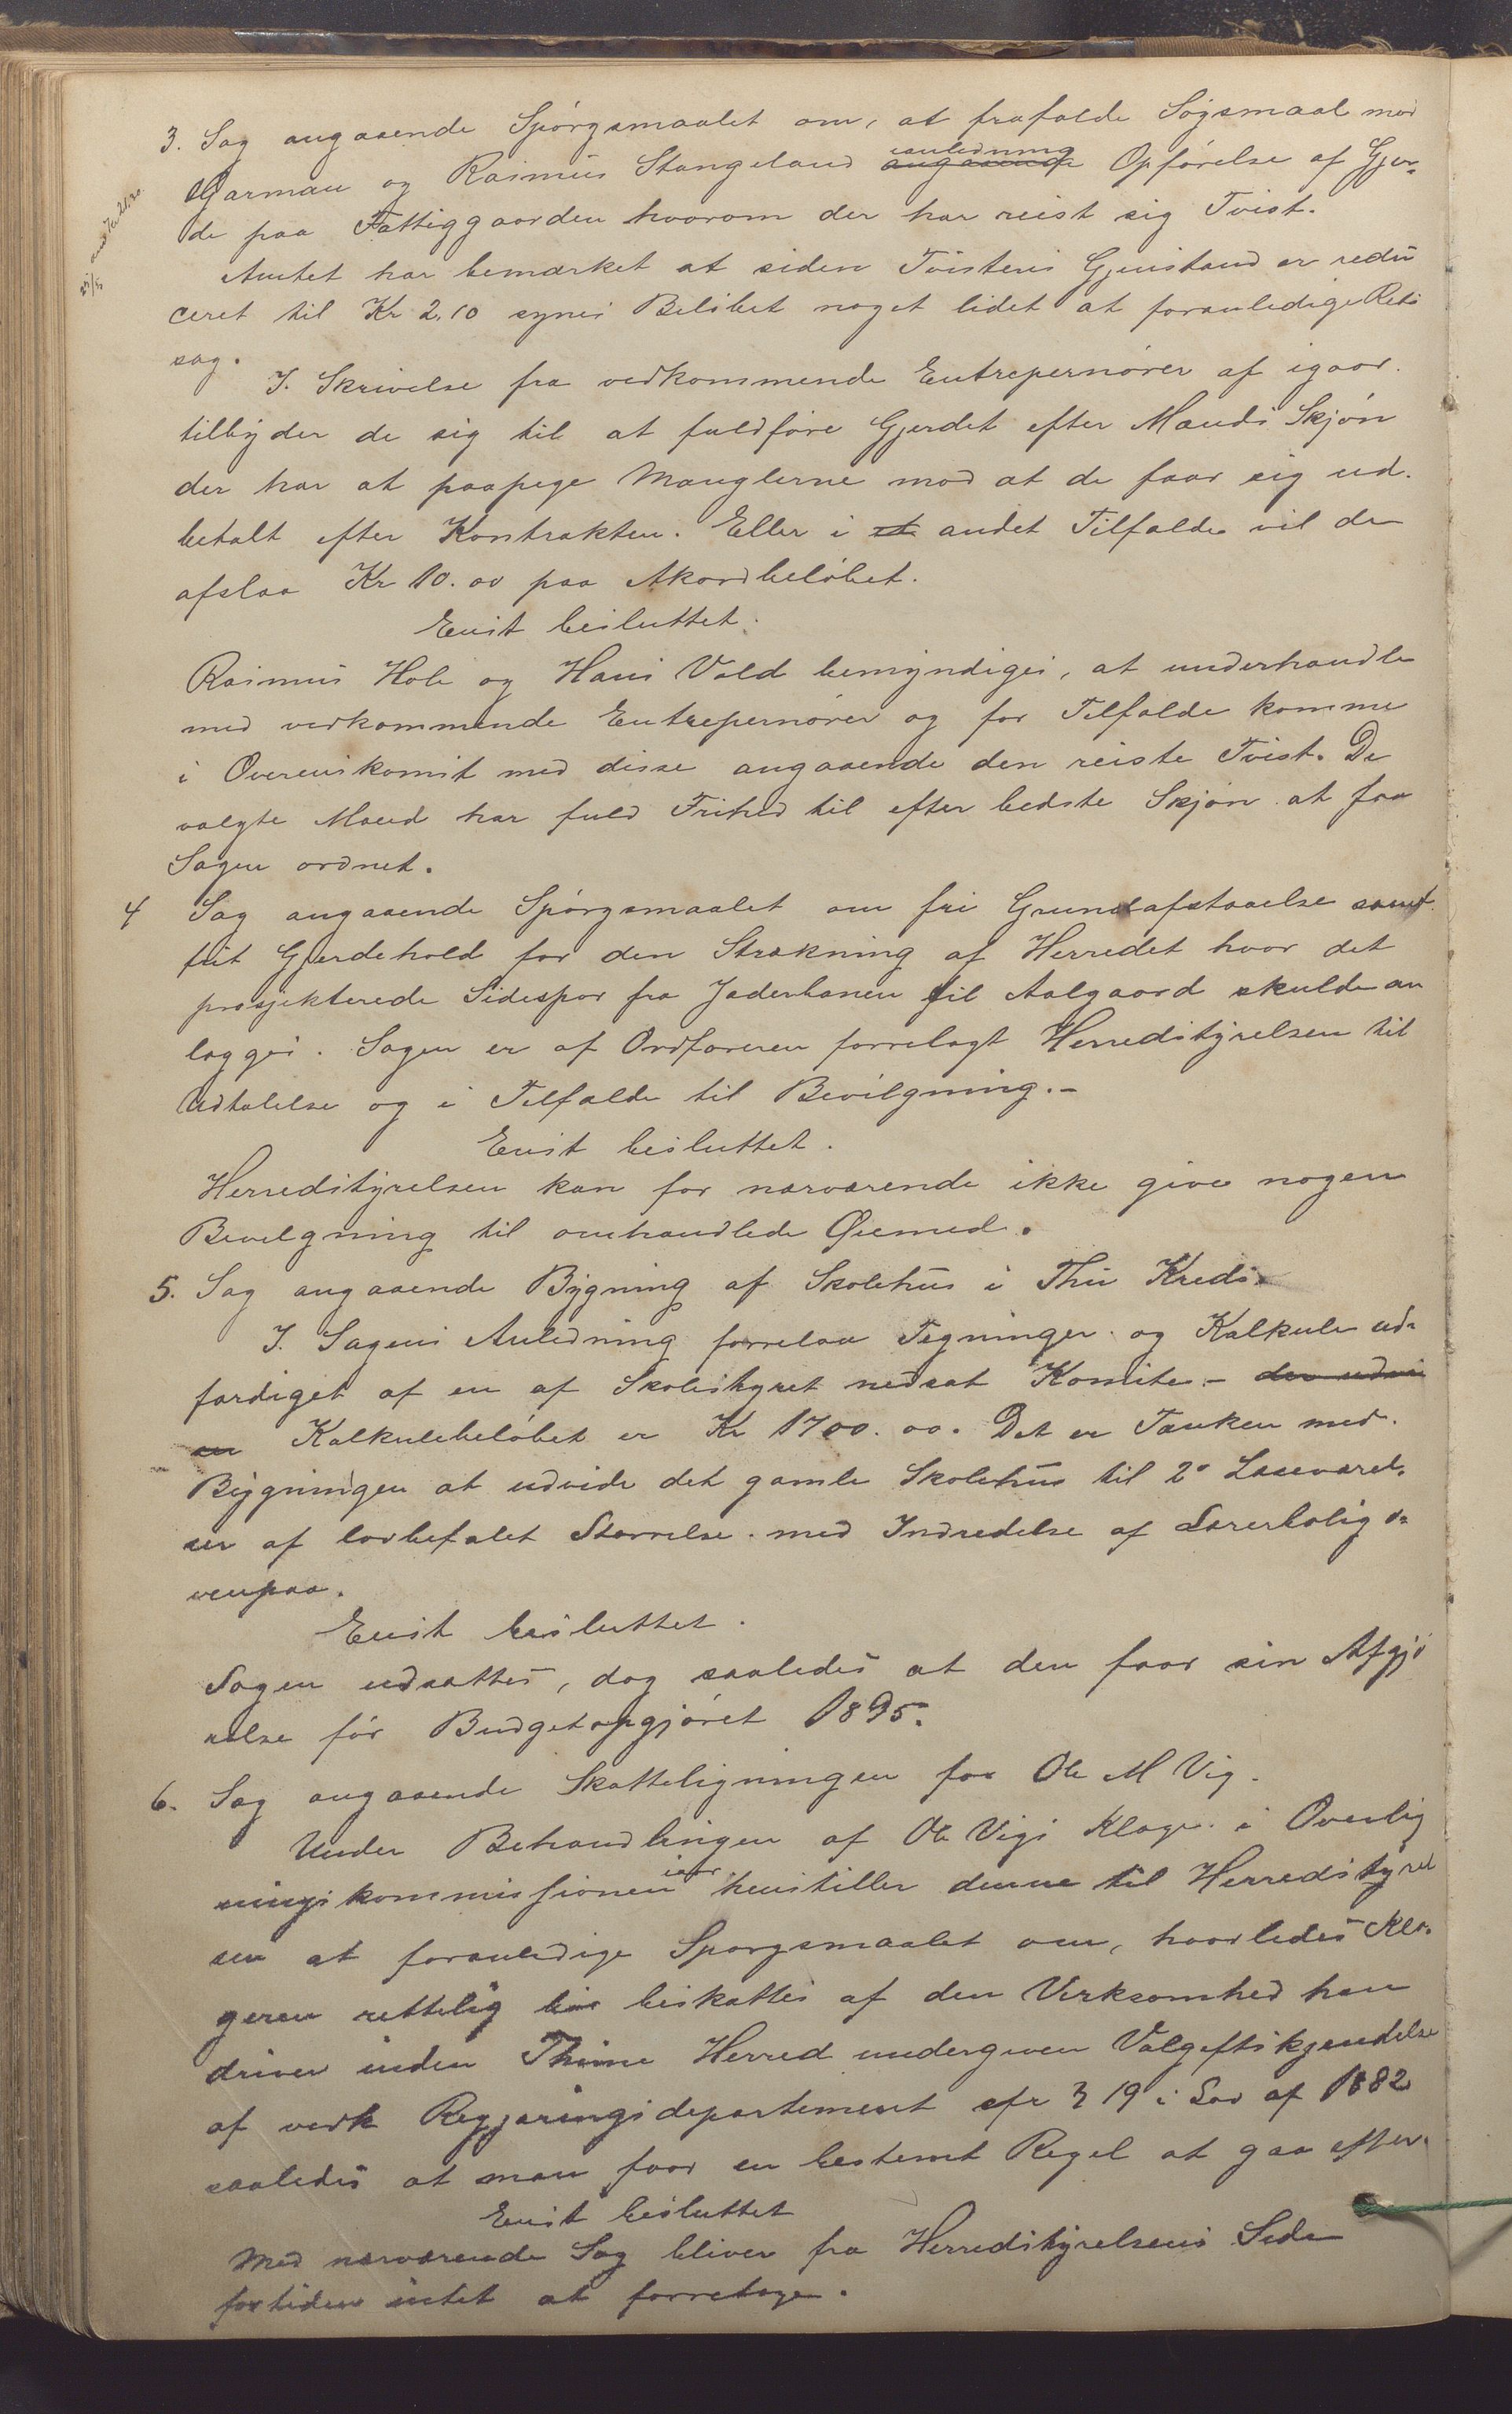 3. Sag angaaende Spørgsmaalet om, at frafalde Søgsmaal mod
Garman og Rasmus Stangeland angaaende anledning Opførelse af Gjer-
de paa Fattiggaarden hvorom der har reist sig Tvist.
Amtet har bemærket at siden Tvistens Gjenstand er redu
ceret til Kr 2,10 synes Beløbet noget lidet at foranledige Rets
sag.
I. Skrivelse fra vedkommende Entrepernører af igaar
tilbyder de sig til at fuldføre Gjerdet efter Mænds Skjøn
der har at paapege Manglerne mod at de faar sig ud-
betalt efter Kontrakten. Eller i et andet Tilfælde vil de
afslaa Kr 10.00 paa Akordbeløbet.
Enst besluttet.
Rasmus Hole og Hans Vold bemyndiges, at underhandle
med vedkommende Entrepernører og for Tilfælde komme
i Overenskomst med disse angaaende den reiste Tvist. De
valgte Mænd har fuld Frihed til efter bedste Skjøn at faa
Sagen ordnet.
4 Sag angaaende Spørgsmaalet om fri Grundafstaaelse samt
frit Gjerdehold for den Strækning af Herredet hvor det
prosjekterede Sidespor fra Jæderbanen til Aalgaard skulde an
lægges. Sagen er af Ordføreren forrelagt Herredstyrelsen til
Udtalelse og i Tilfælde til Bevilgning.-
Enst besluttet.
Herredstyrelsen kan for nærværende ikke give nogen
Bevilgning til omhandlede Øiemed.
5. Sag angaaende Bygning af Skolehus i Thu Kreds.
I. Sagens Anledning forrelaa Tegninger og Kalkule ud-
færdiget af en af Skolestyret nedsat Komite.-
Kalkulebeløbet er Kr 1700.00. Det er Tanken med
Bygningen at udvide det gamle Skolehus til 2 Læseværel-
ser af lovbefalet Størrelse med Indredelse af Lærerbolig o-
venpaa.
Enst besluttet.
Sagen udsættes, dog saaledes at den faar sin Afgjø
relse før Budgetopgjøret 1895.
6. Sag angaaende Skatteligningen for Ole M Vig.
Under Behandlingen af Ole Vigs Klage i Overlig
ningskommissionen iaar henstiller denne til Herredstyrel
sen at foranledige Spørgsmaalet om, hvorledes Kla-
geren rettelig bør beskattes af den Virksomhed han
driver inden Thime Herred undergiven Valgeftskjendelse
af vedk Regjæringsdepartement cfr § 19 i Lov af 1882
saaledes at man faar en bestemt Regel at gaa efter.
Enst besluttet
Med nærværende Sag bliver fra Herredstyrelsens Side
fortiden intet at forretage.